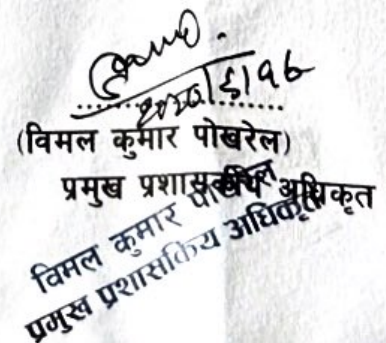 (विमल कुमार पोखरेल)
प्रमुख प्रशासकीय अधिकृत
विमल कुमार पोखरेल
प्रमुख प्रशासकिय अधिकृत